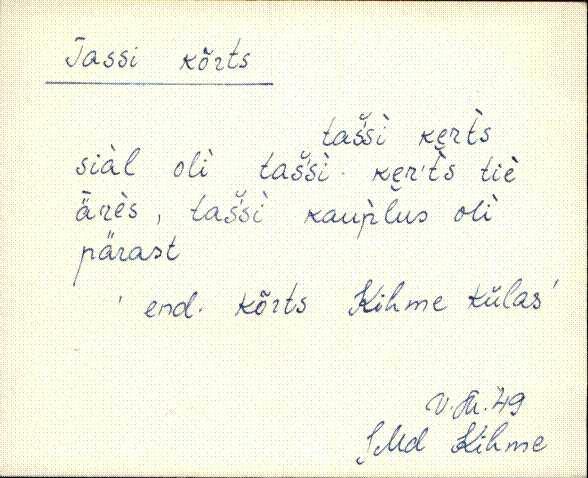 Tassi kõrts
tašši kẹrt̀s
siàl olì tašši kẹr't̀s tiè
ärès, tašši kaup̀lus olì
pärast
' end. kõrts Kihme külas'
V. Jü. '49
SMd Kihme